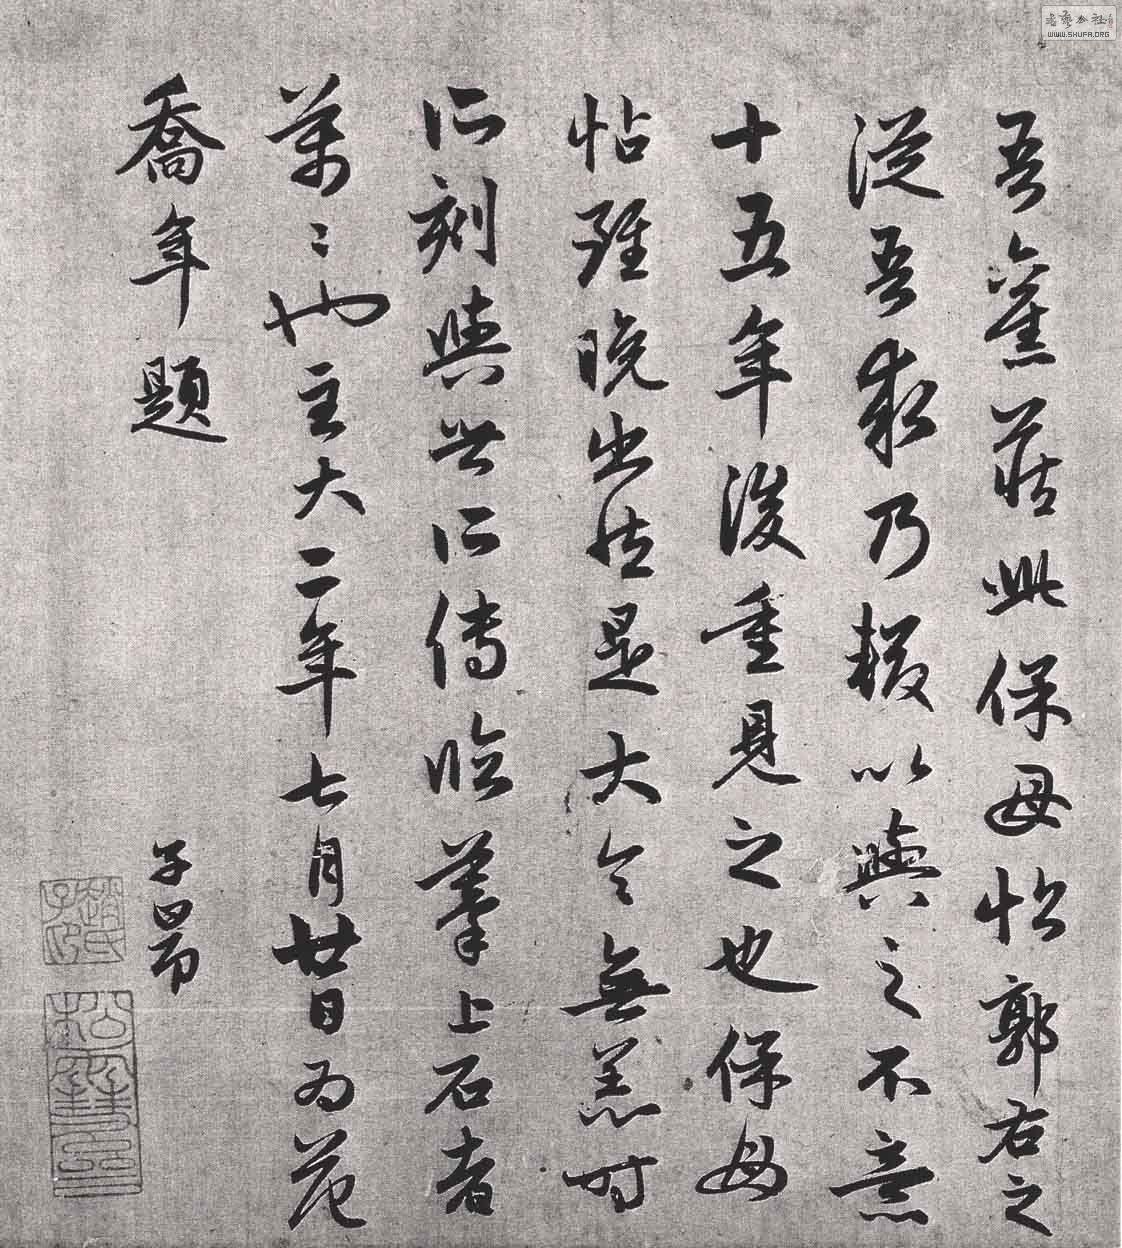 吾舊藏此保母帖郭右之
從吾求乃輟以與之不意
十五年後重見之也保母
帖雖晚出故是大令無恙時
所刻與世所傳臨摹上石者
萬〻也至大二年七月廿日為范
喬年題
子昂
趙氏子昂
松雪齋
書藝公社
WWW.SHUFA.ORG